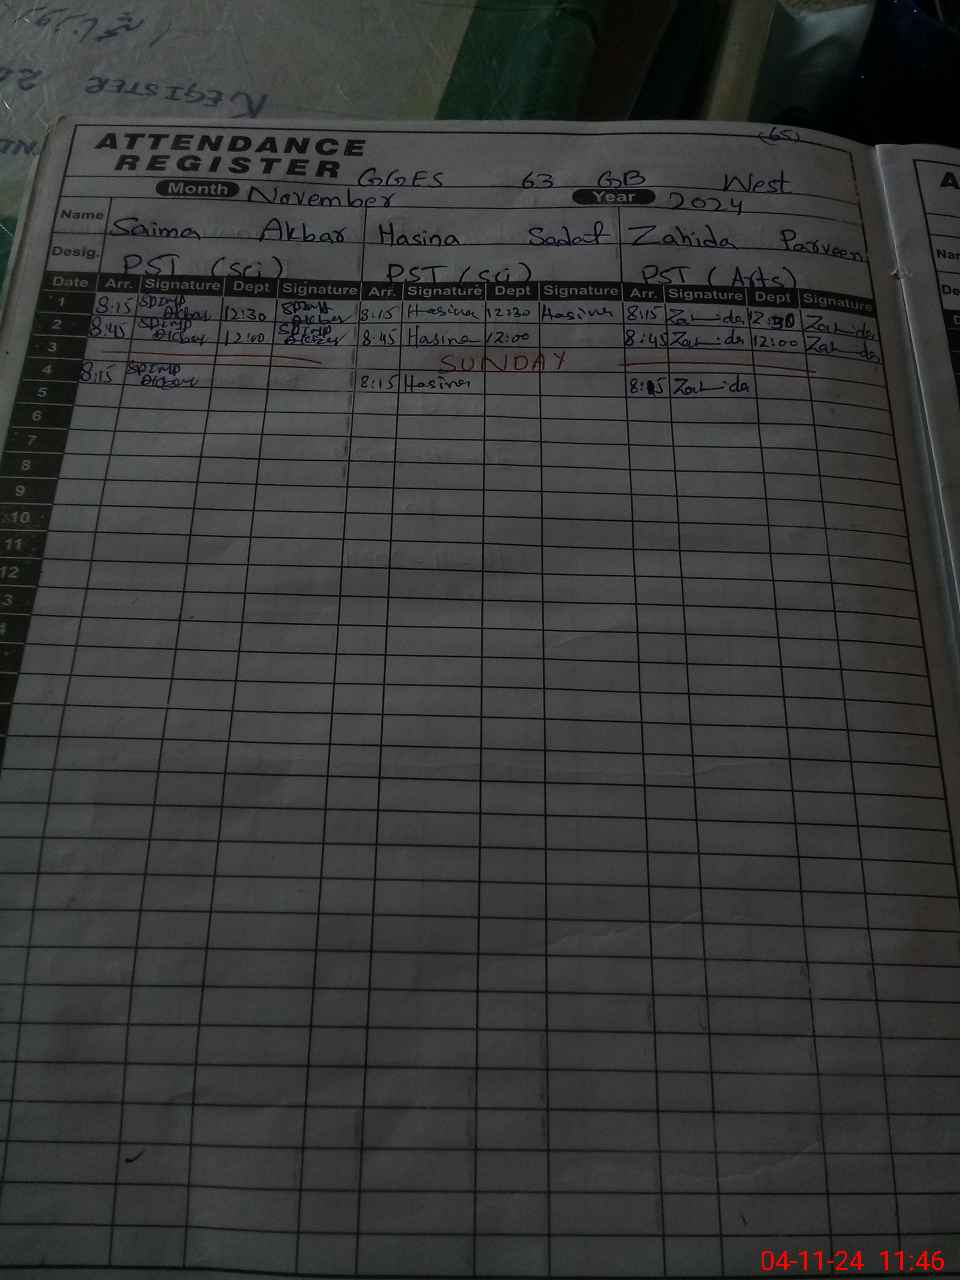 REGISTER
(65)
ATTENDANCE
REGISTER GGES 63 GB West
Month November Year 2024
Name Saima Akbar Hasina Sadaf Zahida Parveen
Desig. PST (Sci) PST (Sci) PST (Arts)
Date Arr. Signature Dept Signature Arr. Signature Dept Signature Arr. Signature Dept Signature
1 8:15 Saima Akbar 12:30 Saima Akbar 8:15 Hasina 12:30 Hasina 8:15 Zahida 12:30 Zahida
2 8:45 Saima Akbar 12:00 Saima Akbar 8:45 Hasina 12:00 8:45 Zahida 12:00 Zahida
3 SUNDAY
4 8:15 Saima Akbar 8:15 Hasina 8:15 Zahida
5
6
7
8
9
10
11
12
3
04-11-24 11:46